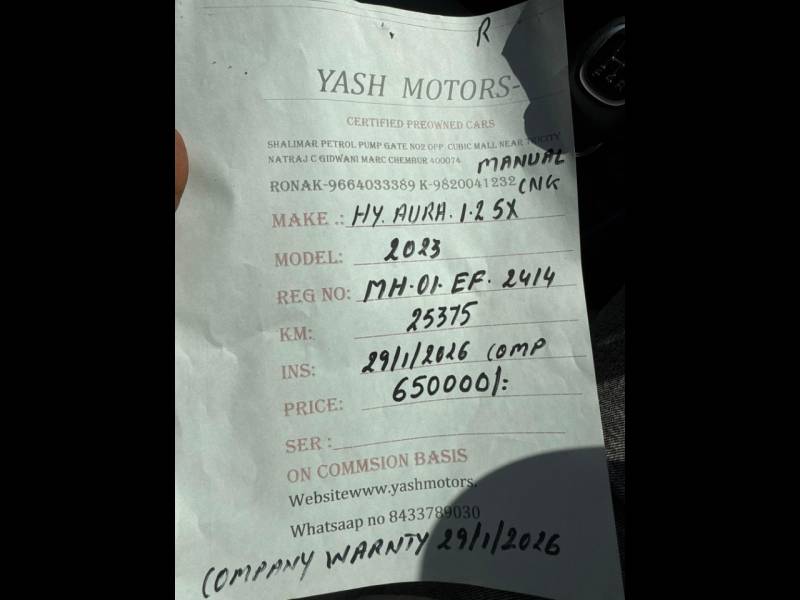 R
YASH MOTORS-
CERTIFIED PREOWNED CARS
SHALIMAR PETROL PUMP GATE NO2 OPP CUBIC MALL NEAR
NATRAJ C GIDWANI MARC CHEMBUR 400074 MANUAL
RONAK-9664033389 K-9820041232 CNG
MAKE .: HY. AURA. 1.2 SX
MODEL: 2023
REG NO: MH.01. EF. 2414
KM: 25375
INS: 29/1/2026 COMP
PRICE: 650000/:
SER :
ON COMMSION BASIS
Websitewww.yashmotors.
Whatsaap no 8433789030
COMPANY WARNTY 29/1/2026